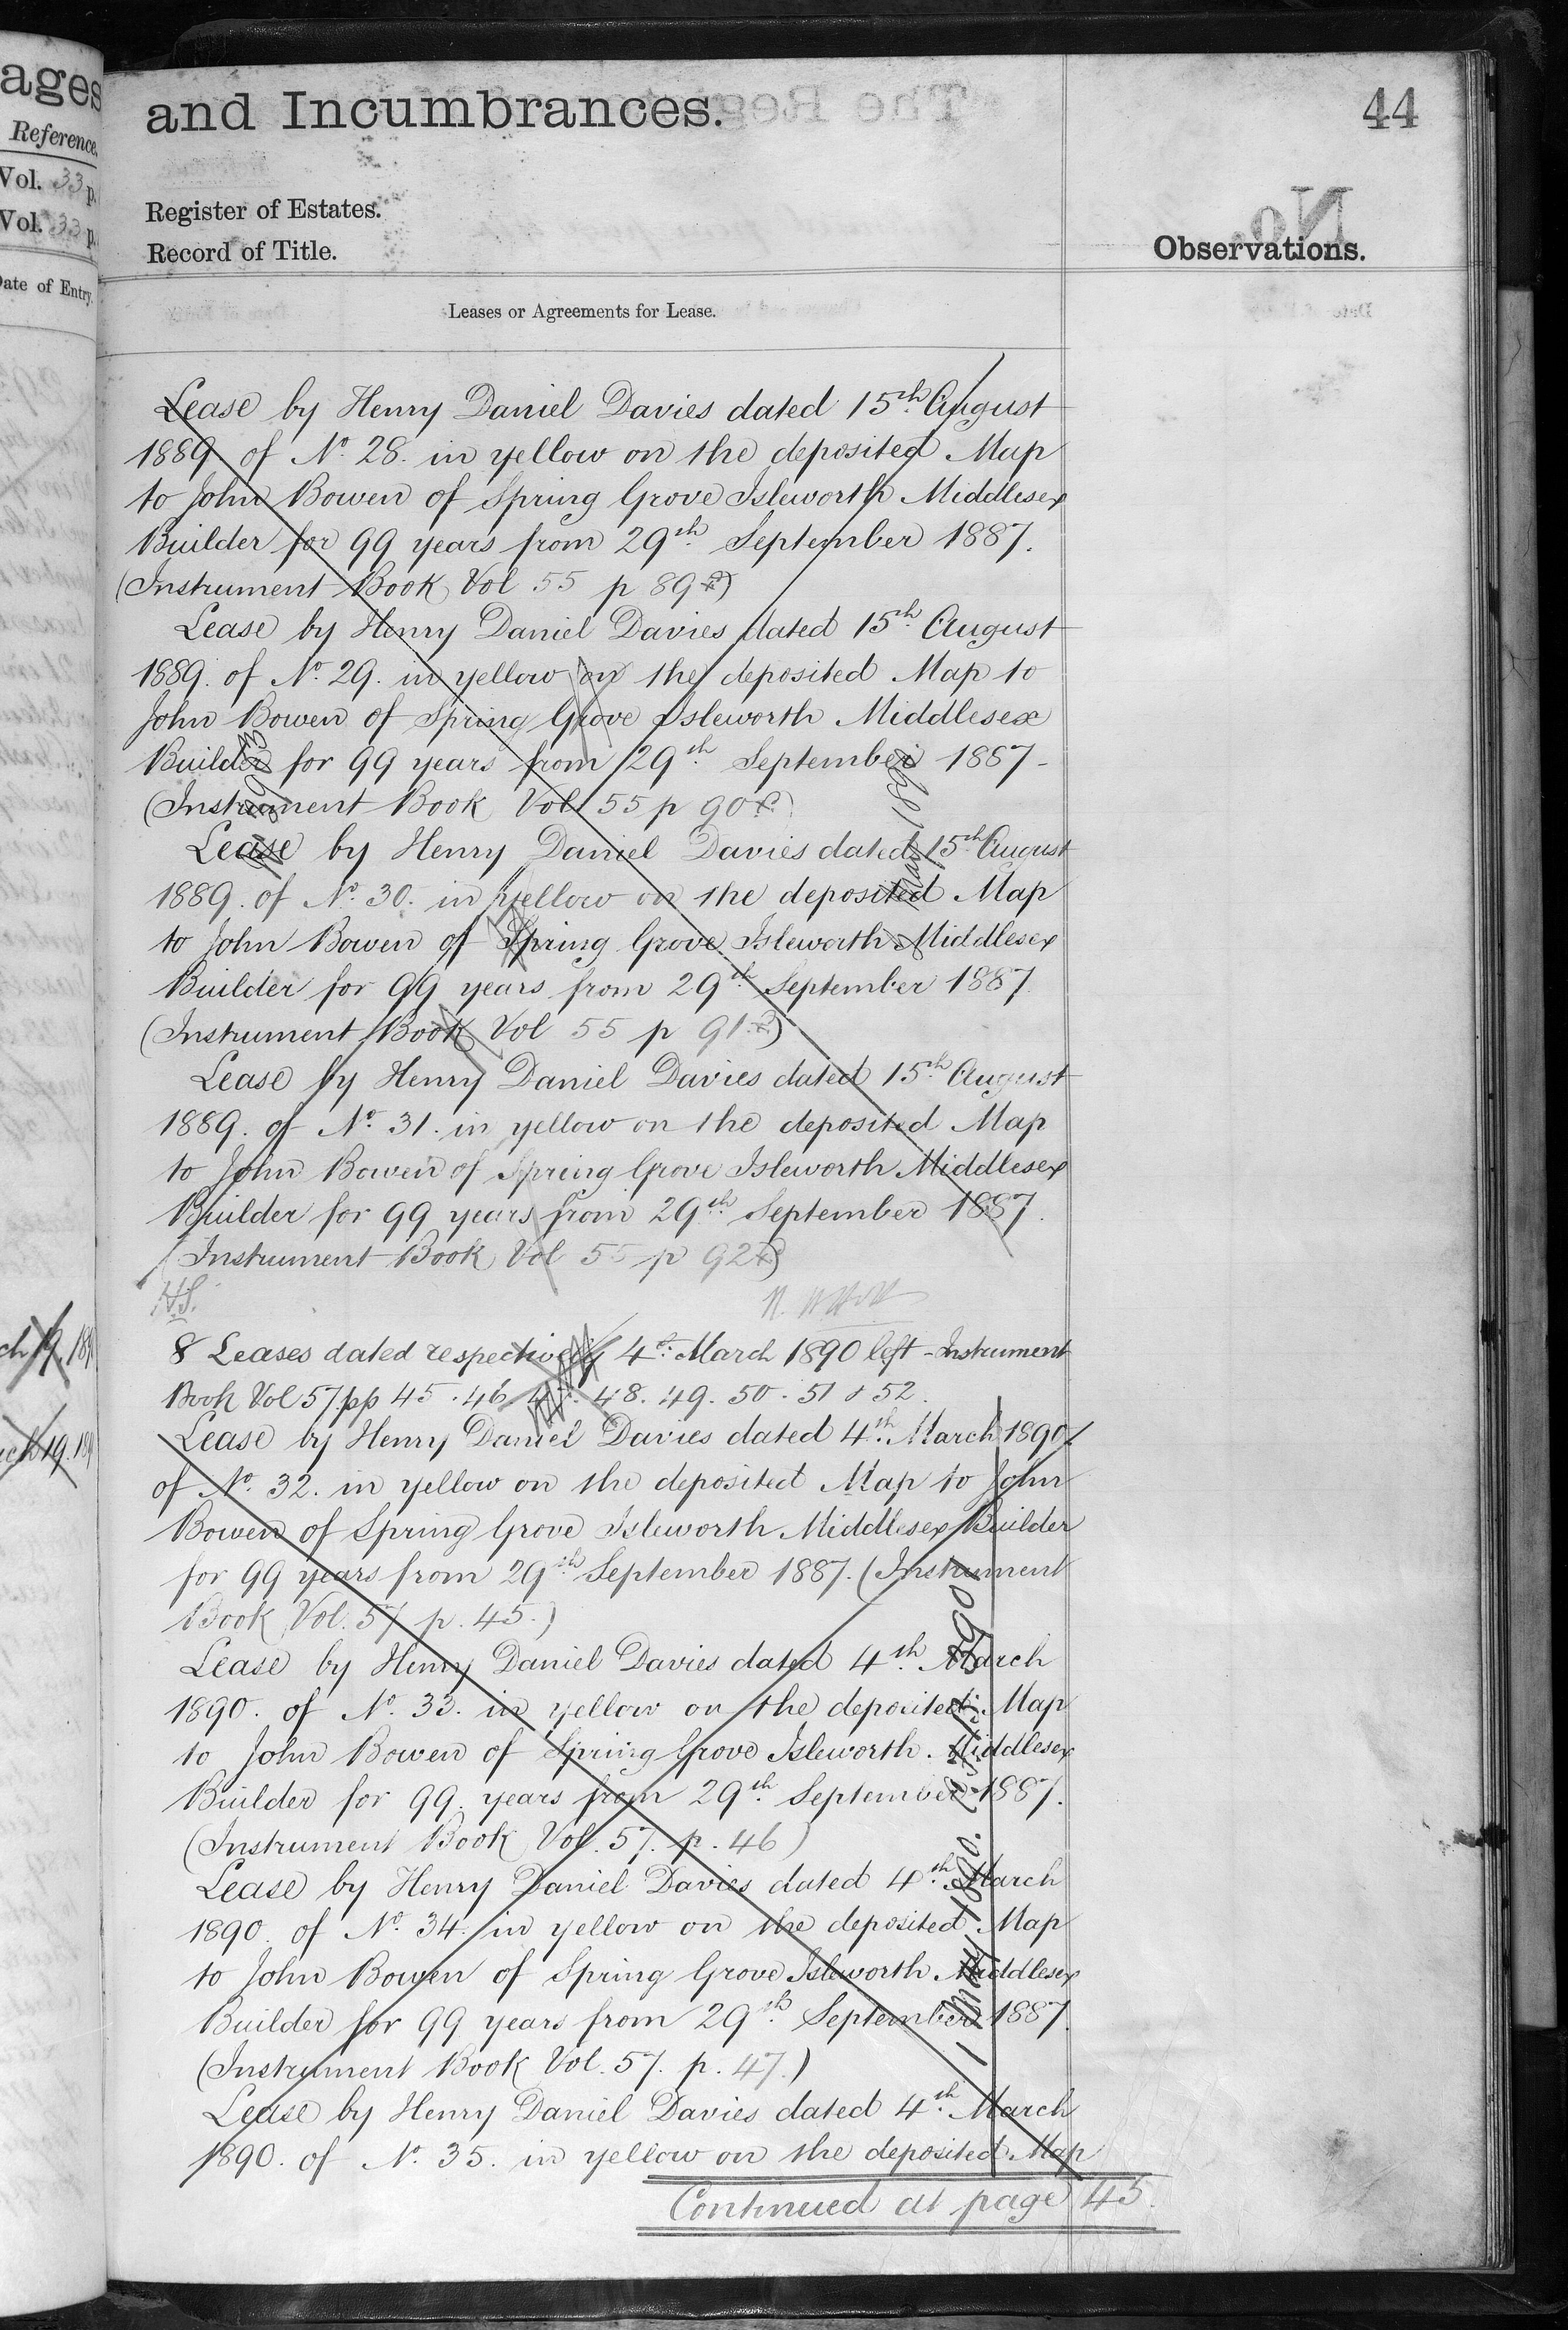 ages
Reference.
Vol. 33 p.
Vol. 33 p.
Date of Entry.
and Incumbrances.
44
Register of Estates.
Record of Title.
No.
Observations.
Leases or Agreements for Lease.
Lease by Henry Daniel Davies dated 15th August
1889 of No. 28. in yellow on the deposited Map
to John Bowen of Spring Grove Isleworth Middlesex
Builder for 99 years from 29th September 1887.
(Instrument Book Vol 55 p 89)
Lease by Henry Daniel Davies dated 15th August
1889. of No. 29. in yellow on the deposited Map to
John Bowen of Spring Grove Isleworth Middlesex
Builder for 99 years from 29th September 1887-
(Instrument Book Vol 55 p 90)
Lease by Henry Daniel Davies dated 15th August
1889. of No. 30. in yellow on the deposited Map
to John Bowen of Spring Grove Isleworth Middlesex
Builder for 99 years from 29th September 1887.
(Instrument Book Vol 55 p 91)
Lease by Henry Daniel Davies dated 15th August
1889. of No. 31. in yellow on the deposited Map
to John Bowen of Spring Grove Isleworth Middlesex
Builder for 99 years from 29th September 1887.
(Instrument Book Vol 55 p 92)
8 Leases dated respectively 4th March 1890 left Instrument
Book Vol 57 pp 45. 46. 47. 48. 49. 50. 51 & 52.
Lease by Henry Daniel Davies dated 4th March 1890.
of No. 32. in yellow on the deposited Map to John
Bowen of Spring Grove Isleworth Middlesex Builder
for 99 years from 29th September 1887. (Instrument
Book Vol. 57 p. 45.)
Lease by Henry Daniel Davies dated 4th March
1890. of No. 33. in yellow on the deposited Map
to John Bowen of Spring Grove Isleworth. Middlesex
Builder for 99. years from 29th September 1887.
(Instrument Book Vol. 57. p. 46)
Lease by Henry Daniel Davies dated 4th March
1890. of No. 34. in yellow on the deposited Map
to John Bowen of Spring Grove Isleworth Middlesex
Builder for 99 years from 29th September 1887.
(Instrument Book Vol. 57. p. 47.)
Lease by Henry Daniel Davies dated 4th March
1890. of No. 35. in yellow on the deposited Map
Continued at page 45.